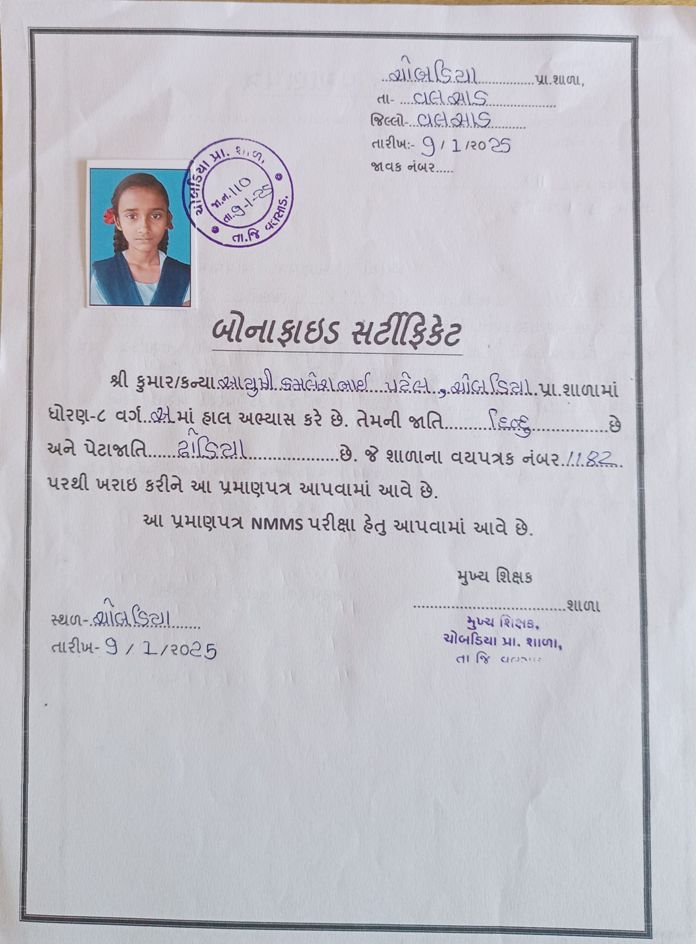 ચોબડિયા પ્રા.શાળા,
તા- વલસાડ
જિલ્લો- વલસાડ
તારીખ:- 9/1/૨૦25
જાવક નંબર.....
ચોબડિયા પ્રા. શાળા,
જા.ન. 110
તા. 9-1-25
તા.જિ વલસાડ.
બોનાફાઇડ સર્ટીફિકેટ
શ્રી કુમાર/કન્યા આયુષી કમલેશભાઈ પટેલ, ચોબડિયા પ્રા.શાળામાં
ધોરણ-૮ વર્ગ અ માં હાલ અભ્યાસ કરે છે. તેમની જાતિ હિન્દુ છે
અને પેટાજાતિ ઢોડિયા છે. જે શાળાના વયપત્રક નંબર 1182
પરથી ખરાઇ કરીને આ પ્રમાણપત્ર આપવામાં આવે છે.
આ પ્રમાણપત્ર NMMS પરીક્ષા હેતુ આપવામાં આવે છે.
મુખ્ય શિક્ષક
શાળા
સ્થળ- ચોબડિયા
તારીખ- 9/1/૨૦25
મુખ્ય શિક્ષક,
ચોબડિયા પ્રા. શાળા,
તા જિ વલસાડ